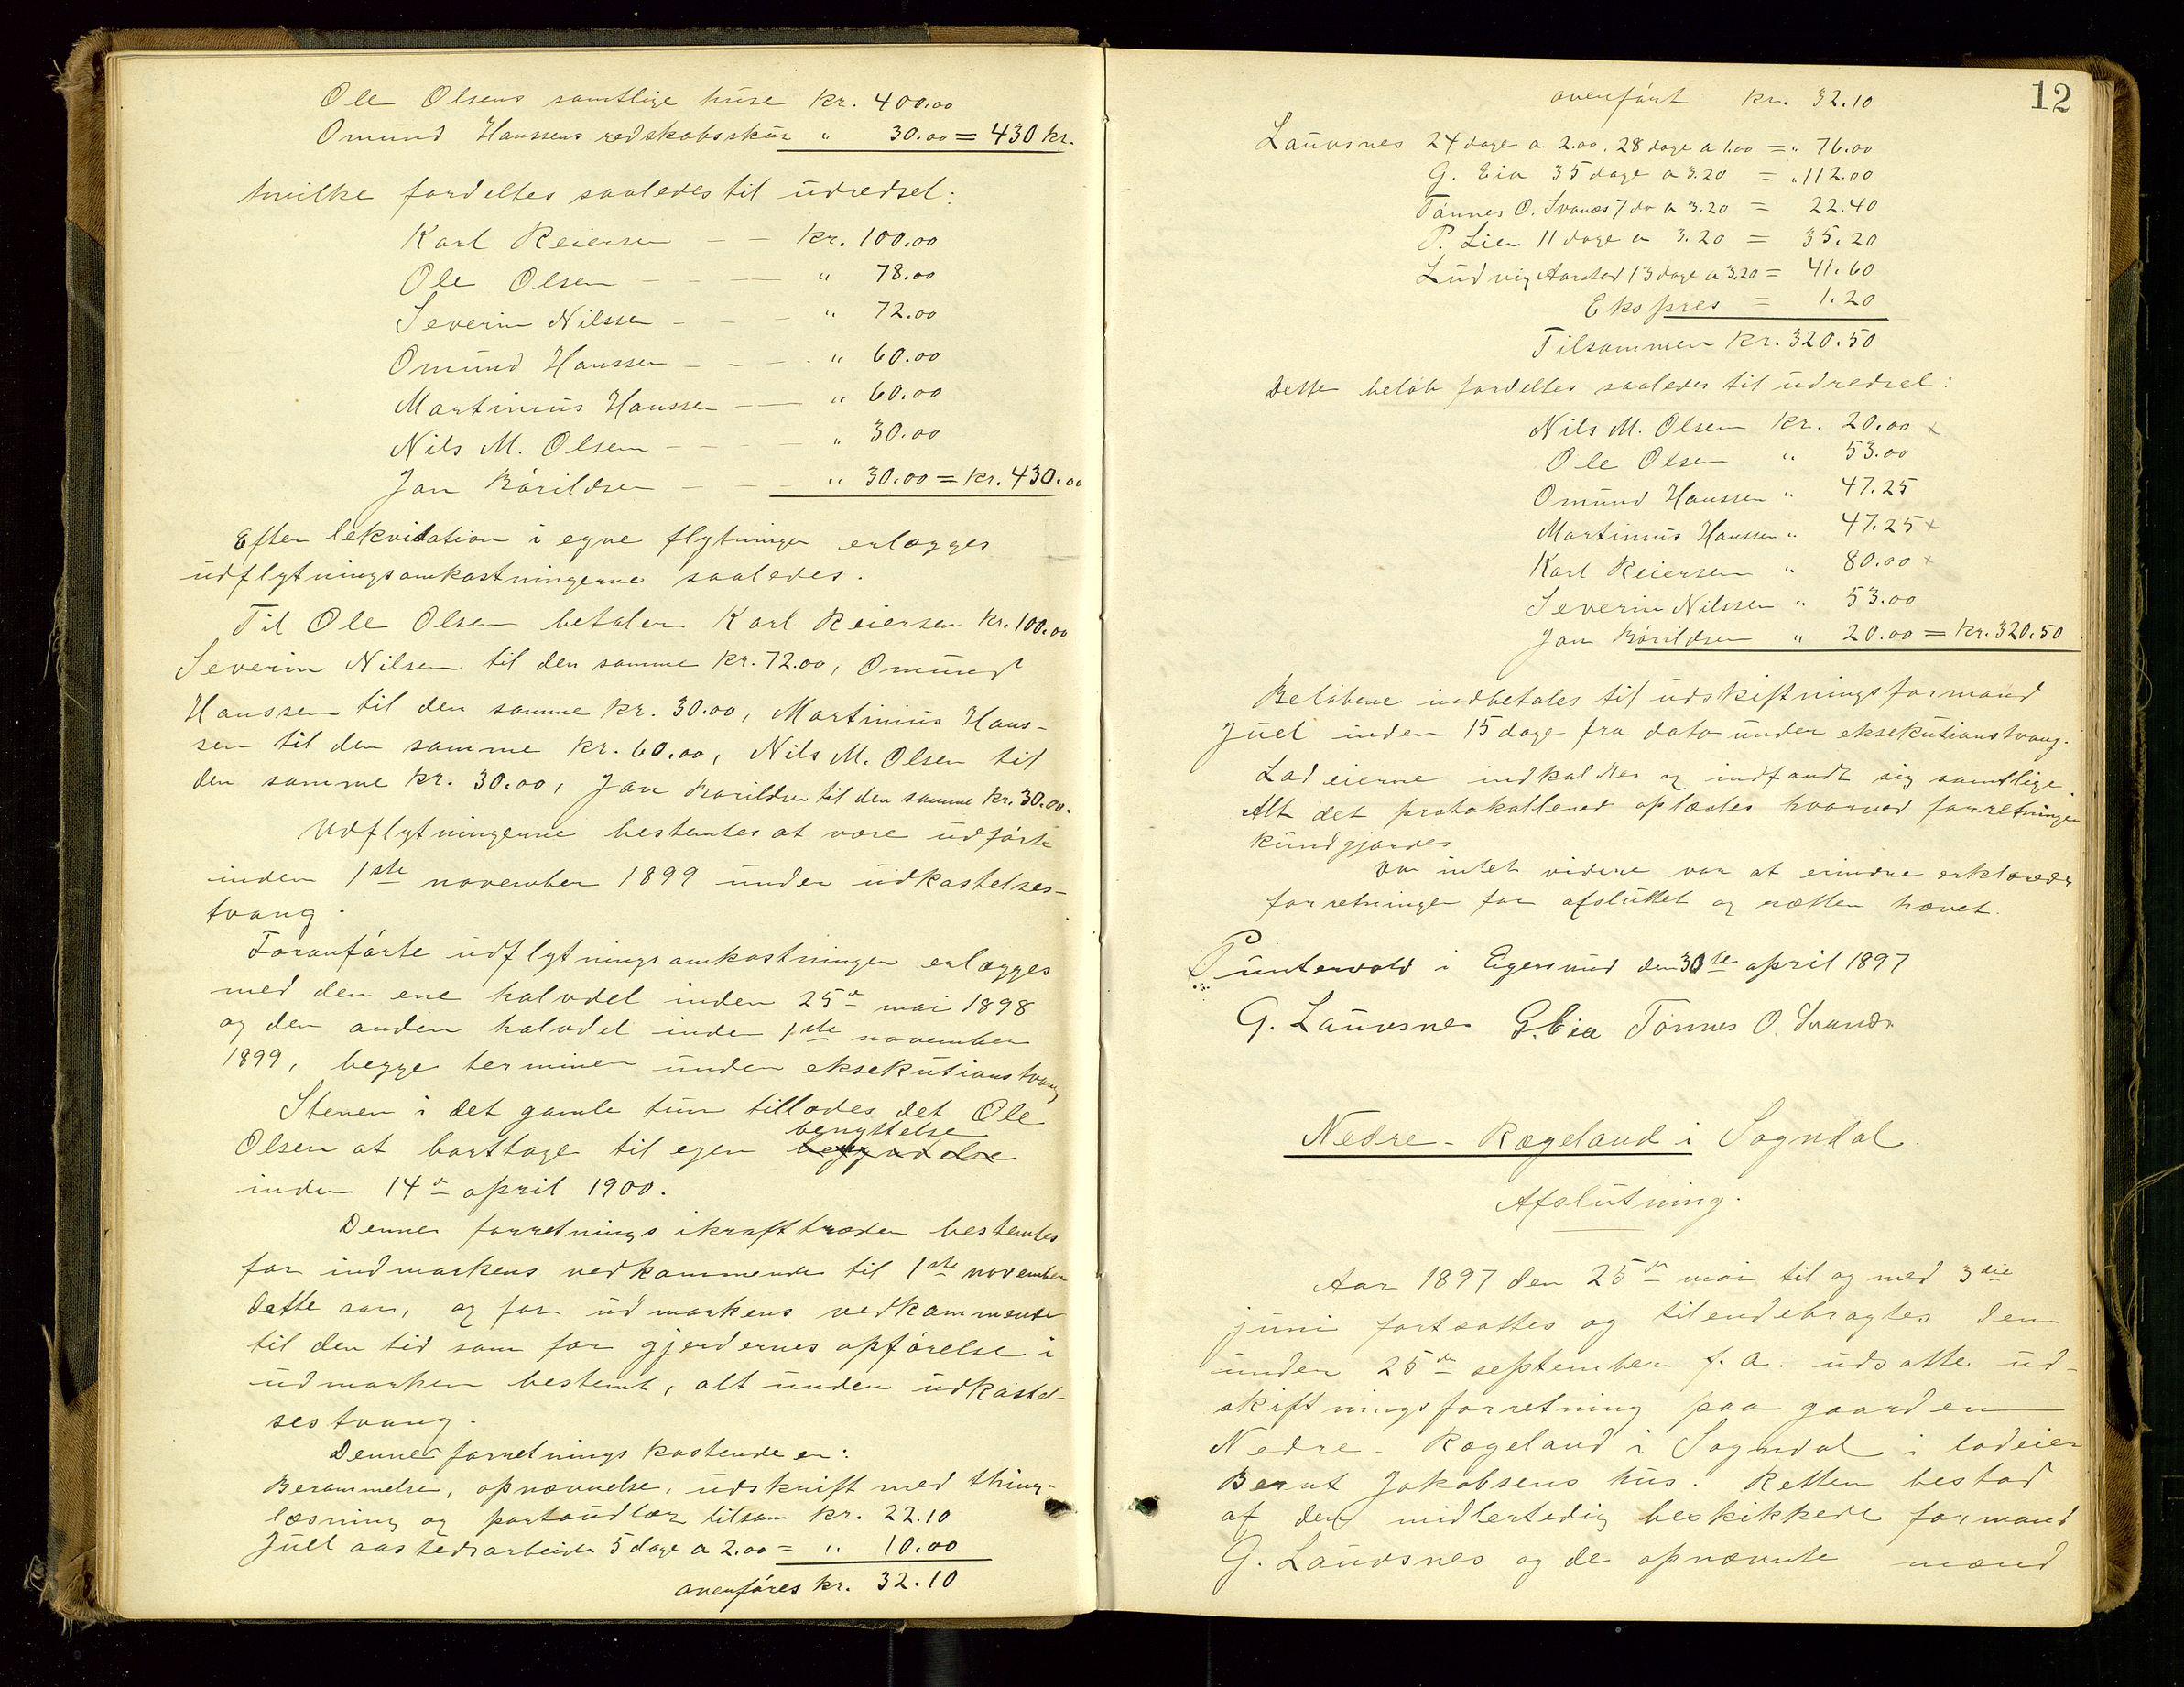 Ole Olsens samtlige huse kr. 400.00
Omund Hanssens redskabsskur " 30.00 = 430 kr.
hvilke fordeltes saaledes til udredsel:
Karl Reiersen - - kr. 100.00
Ole Olsen - - - " 78.00
Severin Nilssen - - - " 72.00
Omund Hanssen - - - " 60.00
Martinius Hanssen - - " 60.00
Nils M. Olsen - - - " 30.00
Jan Bårildsen - - - " 30.00 = kr. 430.00
Efter lekvidation i egne flytninger erlægges
udflytningsomkostningerne saaledes.
Til Ole Olsen betaler Karl Reiersen kr. 100.00
Severin Nilsen til den samme kr. 72.00, Omund
Hanssen til den samme kr. 30.00, Martinius Hans-
sen til den samme kr. 60.00, Nils M. Olsen til
den samme kr. 30.00, Jan Barildsen til den samme kr. 30.00.
Udflytningerne bestemtes at være udførte
inden 1ste november 1899 under udkastelses-
tvang.
Foranførte udflytningsomkostninger erlægges
med den ene halvdel inden 25de mai 1898
og den anden halvdel inden 1ste november
1899, begge terminer under eksekutionstvang
Stenen i det gamle tun tillodes det Ole
benyttelse
Olsen at borttage til egen
inden 14de april 1900.
Denne forretnings ikrafttræden bestemtes
for indmarkens vedkommende til 1ste november
dette aar, og for udmarkens vedkommende
til den tid som for gjerdernes opførelse i
udmarken bestemt, alt under udkastel-
sestvang.
Denne forretnings kostende er:
Berammelse, opnævnelse, udskrift med thing-
læsning og portoudlæg tilsam kr. 22.10
Juel aastedsarbeide 5 dage a 2.00 = " 10.00
overføres kr. 32.10
12
overført kr. 32.10
Lauvsnes 24 dage a 2.00. 28 dage a 1.00 = " 76.00
G. Eia 35 dage a 3.20 = " 112.00
Tønnes O. Svanes 7 do a 3.20 = 22.40
P. Lien 11 dage a 3.20 = 35.20
Ludvig Aarstad 13 dage a 3.20 = 41.60
Ekspres = 1.20
Tilsammen kr. 320.50
Dette beløb fordeltes saaledes til udredsel:
Nils M. Olsen kr. 20.00 x
Ole Olsen " 53.00
Omund Hanssen " 47.25
Martinius Hanssen " 47.25 x
Karl Reiersen " 80.00 x
Severin Nilssen " 53.00
Jan Bårildsen " 20.00 = kr. 320.50
Beløbene indbetales til udskiftningsformand
Juel inden 15 dage fra dato under eksekutionstvang.
Lodeierne indkaldtes og indfandt sig samtlige.
Alt det protokollered oplæstes hvorved forretningen
kundgjordes
Da intet videre var at erindre erklæredes
forretningen for afsluttet og rætten hævet.
Puntervold i Egersund den 30te april 1897
G. Lauvsnes G. Eia Tönnes O. Svanes
Nedre-Rægeland i Sogndal.
Afslutning.
Aar 1897 den 25de mai til og med 3die
juni fortsattes og tilendebragtes den
under 25de september f. a. udsatte ud-
skiftningsforretning paa gaarden
Nedre-Rægeland i Sogndal i lodeier
Bernt Jakobsens hus. Retten bestod
af den midlertedig beskikkede formand
G. Lauvsnes og de opnævnte mænd